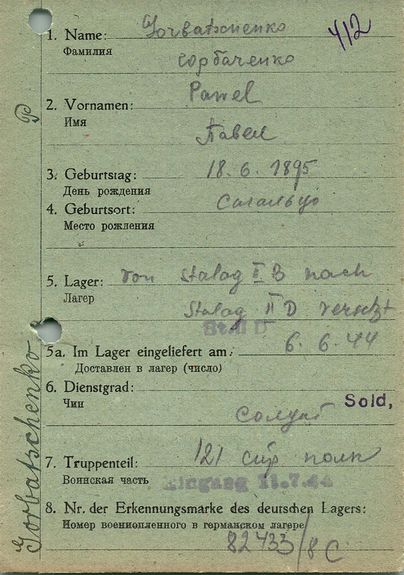 1. Name: Gorbatschenko 412
Фамилия Горбаченко
2. Vornamen: Pawel
Имя Павел
3. Geburtstag: 18. 6. 1895
День рождения
4. Geburtsort:
Место рождения
5. Lager: von Stalag II B nach
Лагер Stalag II D versetzt
5a. Im Lager eingeliefert am: 6. 6. 44
Доставлен в лагер (число)
6. Dienstgrad: Sold,
Чин Солдат
7. Truppenteil: 121 полк
Воинская часть Eingang 11.7.44
8. Nr. der Erkennungsmarke des deutschen Lagers:
Номер военнопленного в германском лагере
82433/8 C
Gorbatschenko P